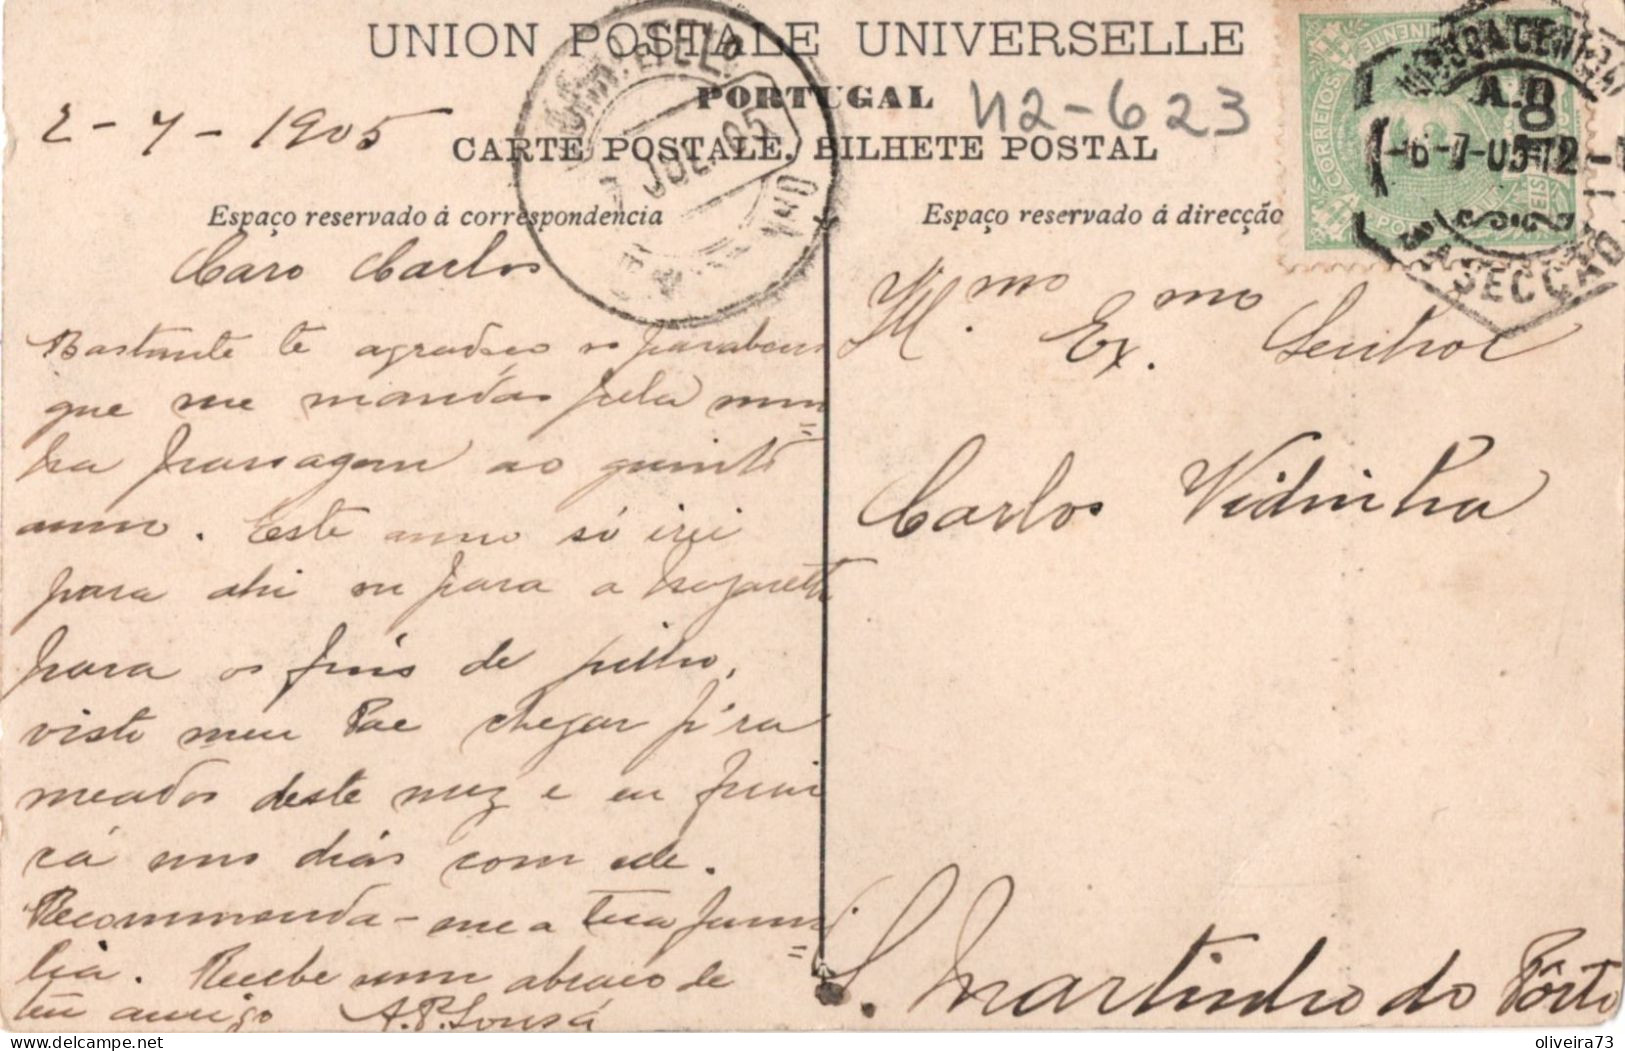 UNION POSTALE UNIVERSELLE
PORTUGAL
42-623
CARTE POSTALE. BILHETE POSTAL
2-7-1905
Espaço reservado á correspondencia
Caro Carlos
Bastante te agradeço os parabens
que me mandas pela mi
nha passagem ao quinto
anno. Este anno só irei
para ahi ou para a Nazareth
para os fins de julho,
visto meu Pae chegar p'ra
meados deste mez e eu ficar
cá uns dias com elle.
Recommenda-me a tua fami
lia. Recebe um abraço de
teu amigo A.P. Sousa
Espaço reservado á direcção
Ill.mo Ex.mo Senhor
Carlos Vidinha
S. Martinho do Pôrto
CORREIOS
CONTINENTE
LISBOA CENTRAL
-6-7-05-12
SECÇÃO
JUL. 05
oliveira73